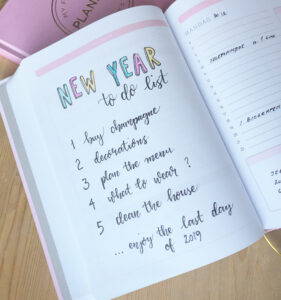 MY F
PLAN
NEW YEAR
to do list
1 buy champagne
2 decorations
3 plan the menu
4 what to wear ?
5 clean the house
... enjoy the last day
of 2019
MAANDAG